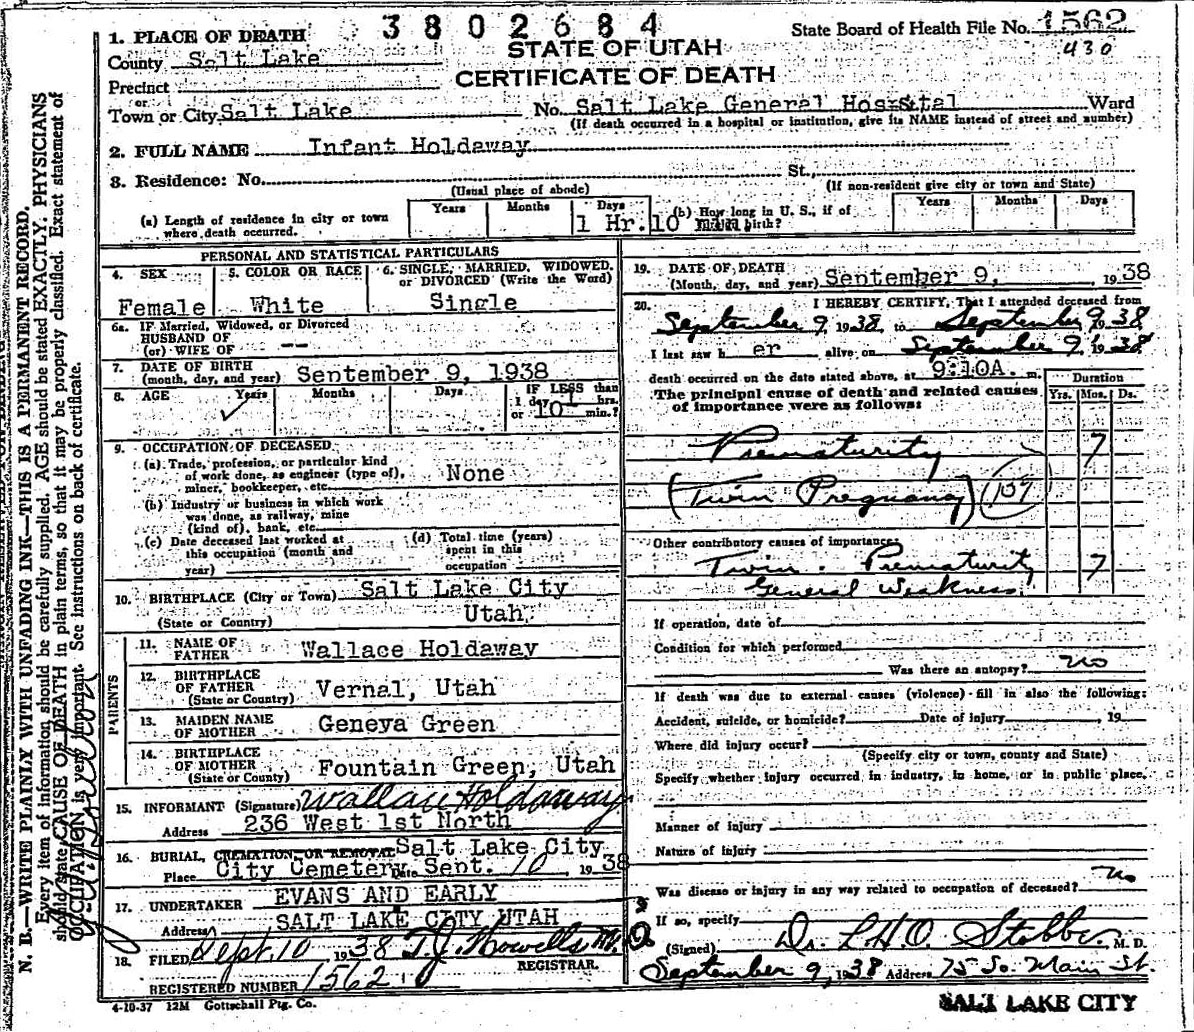 3802684
State Board of Health File No. 1562
430
STATE OF UTAH
CERTIFICATE OF DEATH
1. PLACE OF DEATH
County Salt Lake
Precinct
or
Town or City Salt Lake No. Salt Lake General Hospital Ward
(If death occurred in a hospital or institution, give its NAME instead of street and number)
2. FULL NAME Infant Holdaway
3. Residence: No. St.,
(Usual place of abode) (If non-resident give city or town and State)
(a) Length of residence in city or town where death occurred. Years Months Days 1 Hr. 10 min.
(b) How long in U. S., if of birth? Years Months Days
PERSONAL AND STATISTICAL PARTICULARS
4. SEX Female
5. COLOR OR RACE White
6. SINGLE, MARRIED, WIDOWED, or DIVORCED (Write the Word) Single
6a. IF Married, Widowed, or Divorced
HUSBAND OF
(or) WIFE OF --
7. DATE OF BIRTH
(month, day, and year) September 9, 1938
8. AGE Years Months Days IF LESS than
1 day 1 hrs.
or 10 min.?
9. OCCUPATION OF DECEASED
(a) Trade, profession, or particular kind
of work done, as engineer (type of),
miner, bookkeeper, etc. None
(b) Industry or business in which work
was done, as railway, mine
(kind of), bank, etc.
(c) Date deceased last worked at
this occupation (month and
year)
(d) Total time (years)
spent in this
occupation
10. BIRTHPLACE (City or Town) Salt Lake City
(State or Country) Utah
PARENTS
11. NAME OF
FATHER Wallace Holdaway
12. BIRTHPLACE
OF FATHER
(State or Country) Vernal, Utah
13. MAIDEN NAME
OF MOTHER Geneva Green
14. BIRTHPLACE
OF MOTHER
(State or County) Fountain Green, Utah
15. INFORMANT (Signature) Wallace Holdaway
Address 236 West 1st North
16. BURIAL, CREMATION OR REMOVAL Salt Lake City
Place City Cemetery Date Sept. 10, 1938
17. UNDERTAKER EVANS AND EARLY
Address SALT LAKE CITY UTAH
18. FILED Sept. 10 1938 T.J. Howells M.D.
REGISTRAR.
REGISTERED NUMBER 1562
19. DATE OF DEATH
(Month, day, and year) September 9, 1938
20. I HEREBY CERTIFY, That I attended deceased from
September 9 1938, to September 9 1938
I last saw her alive on September 9, 1938
death occurred on the date stated above, at 9:10A. m.
The principal cause of death and related causes
of importance were as follows:
Duration
Yrs. Mos. Ds.
Prematurity 7
(Twin Pregnancy) 159
Other contributory causes of importance:
Twin. Prematurity 7
General Weakness
If operation, date of
Condition for which performed
Was there an autopsy? no
If death was due to external causes (violence) fill in also the following:
Accident, suicide, or homicide? Date of injury , 19
Where did injury occur?
(Specify city or town, county and State)
Specify whether injury occurred in industry, in home, or in public place.
Manner of injury
Nature of injury
Was disease or injury in any way related to occupation of deceased? no
If so, specify
(Signed) Dr. L.H.O. Stobbe M. D.
September 9, 1938 Address 75 So. Main St.
SALT LAKE CITY
4-10-37 12M Gottschall Ptg. Co.
N. B.—WRITE PLAINLY WITH UNFADING INK—THIS IS A PERMANENT RECORD.
Every item of information should be carefully supplied. AGE should be stated EXACTLY. PHYSICIANS
should state CAUSE OF DEATH in plain terms, so that it may be properly classified. Exact statement of
OCCUPATION is very important. See instructions on back of certificate.